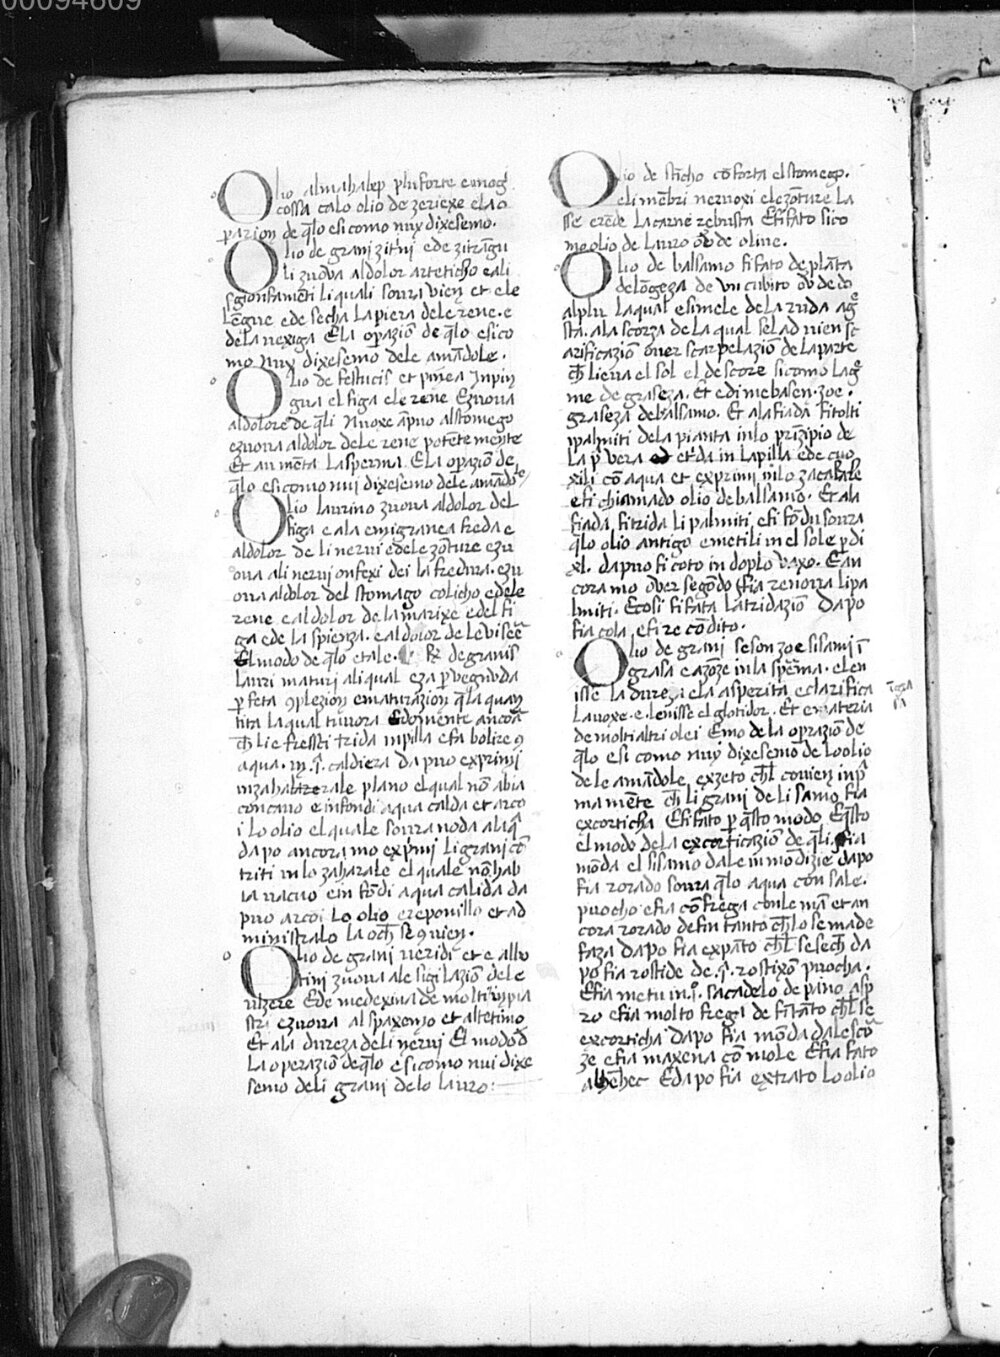 00094609
Olio almahalep plu forte e mogl
cossa calo olio de zeriexe e la o
parion de q̄lo esi como nuy dixesemo.
Olio de grani zitrni e de zitrāgu
li zuova al dolor arteticho e ali
segionfamēti li quali soura vien et ele
lēgue e de secha la piera dele rene. e
dela nexiga E la opazion de q̄lo esi co
mo nuy dixesemo dele amādole.
Olio de festucis et pinea Inpin
gua el figa e le rene E zuova
al dolore de q̄li Nuoxe apuo al stomego
e zuova al dolor dele rene potētemente
Et aumēta la sperma. E la opazion de
q̄lo esi como nui dixesemo dele amādole
Olio laurino zuova al dolor del
figa e ala emigranea freda e
al dolor de li nervi e dele zōture e zu
ova ali nervi onfexi dei la fredura. e zu
ova al dolor del stomago colicho e dele
rene e al dolor de la marixe e del fi
ga e de la spienza. e al dolor de le viseē
El modo de q̄lo e tale. ℞ de granis
lauri maturi ali qual e za pvegnuda
pfeta 9plezion e maturazion q̄la quan
tita la qual tu vora E domente ancora
ch̄ li e freschi trida in pilla e fa bolire 9
aqua. in .j. caldiera da puo exprimi
in zaharale plano el qual nō abia
concavo e infondi aqua calda et arco
i lo olio el quale soura noda al aq̄
da po ancora mo exp̄mi li grani cō
triti in lo zaharale el quale nō hab
ia vacuo e in fōdi aqua calida da
puo arcoi lo olio e reponillo et ad
ministralo la och̄ se 9vien.
Olio de grani veridi et e albo
tini zuova ale sigilazion dele
ulzere E de medexina de molti inpia
stri e zuova al spaxemo et al tetimo
Et ala dureza de li nervi El modo d
la operazio de q̄lo esi como nui dixe
semo deli grani de lo lauro:
Olio de sticho cōforta el stomego.
e li mēbri nervoxi e le zōture la
sse crēde la carne rebusta E fi fato sico
mo olio de lauro ov̄e de olive.
Olio de balsamo fi fato de plāta
de lōgeza de un cubito ov̄ de do
al plu la qual e simele de la ruda agre
sta. ala scorza de la qual se lad vien sc
arificazion over scarpelazion de la parte
ch̄ lieva el sol el de score si como lagre
me de graseza. Et e di me basen. zoe.
graseza de balsamo. Et ala fiada fi tolti
i palmiti dela pianta in lo prīzipio de
la p̄ vera et e trida in la pilla e de cuo
xili cō aqua et exprimi in lo zacabare
e fi chiamado olio de balsamo. Et ala
fiada fi trida li palmiti e fi fōdu soura
q̄lo olio antigo e metili in el sole p di
xl. da puo fi coto in doplo vaxo. E an
cora mo over segōdo fia renova li pa
lmiti. E cosi fi fata la tridazion Da po
fia cola e fi recōdito.
Olio de grani sesonzoe sisami ī
grasa e azōze in la spēma. e len
isse la dureza e la asperita e clarifica
la voxe. e lenisse el glotidor. Et e materia
de molti altri olei E mo de la oprazio de
q̄lo e si como nuy dixesemo de lo olio
dele amādole, exzeto ch̄l convien inp̄
ma mēte ch̄ li grani de li samo fia
excorticha E fi fato p q̄sto modo E q̄sto
el modo dela excorticazion de q̄li. fia
mōda el sisamo dale inmōdizie da po
fia rorado soura q̄lo aqua con sale.
puocho e fia cōfrega cōn le mā et an
cora rorado de fin tanto ch̄ lo se made
faza Da po fia expāto ch̄l se sech̄ da
po fia rostide de .j. rostixō puocha.
E fia metu in .j. sacadelo de pano asp
ro e fia molto frega de fi tāto ch̄l se
excorticha Da po fia mōda dale scor
ze e fia maxena cō mole E fia fato
E da po fia extrato lo olio